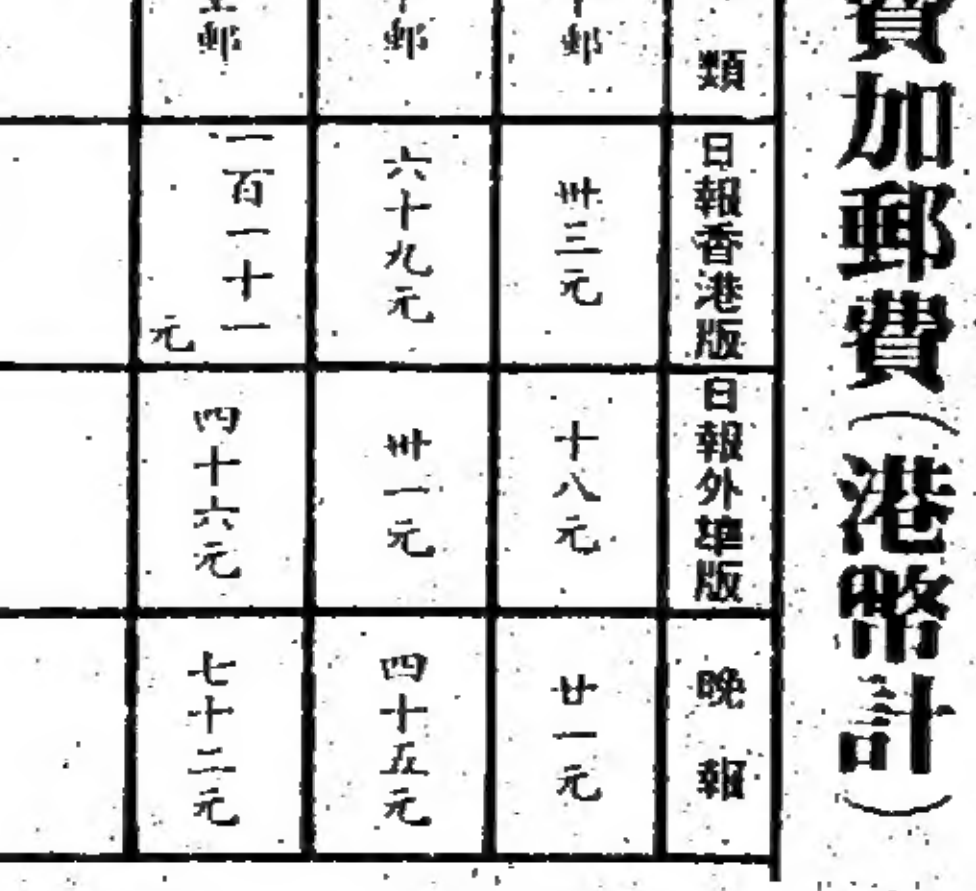 費加郵費(港幣計)
類 日報香港版 日報外埠版 晚報
郵 卅三元 十八元 廿一元
郵 六十九元 卅一元 四十五元
郵 一百一十一元 四十六元 七十二元